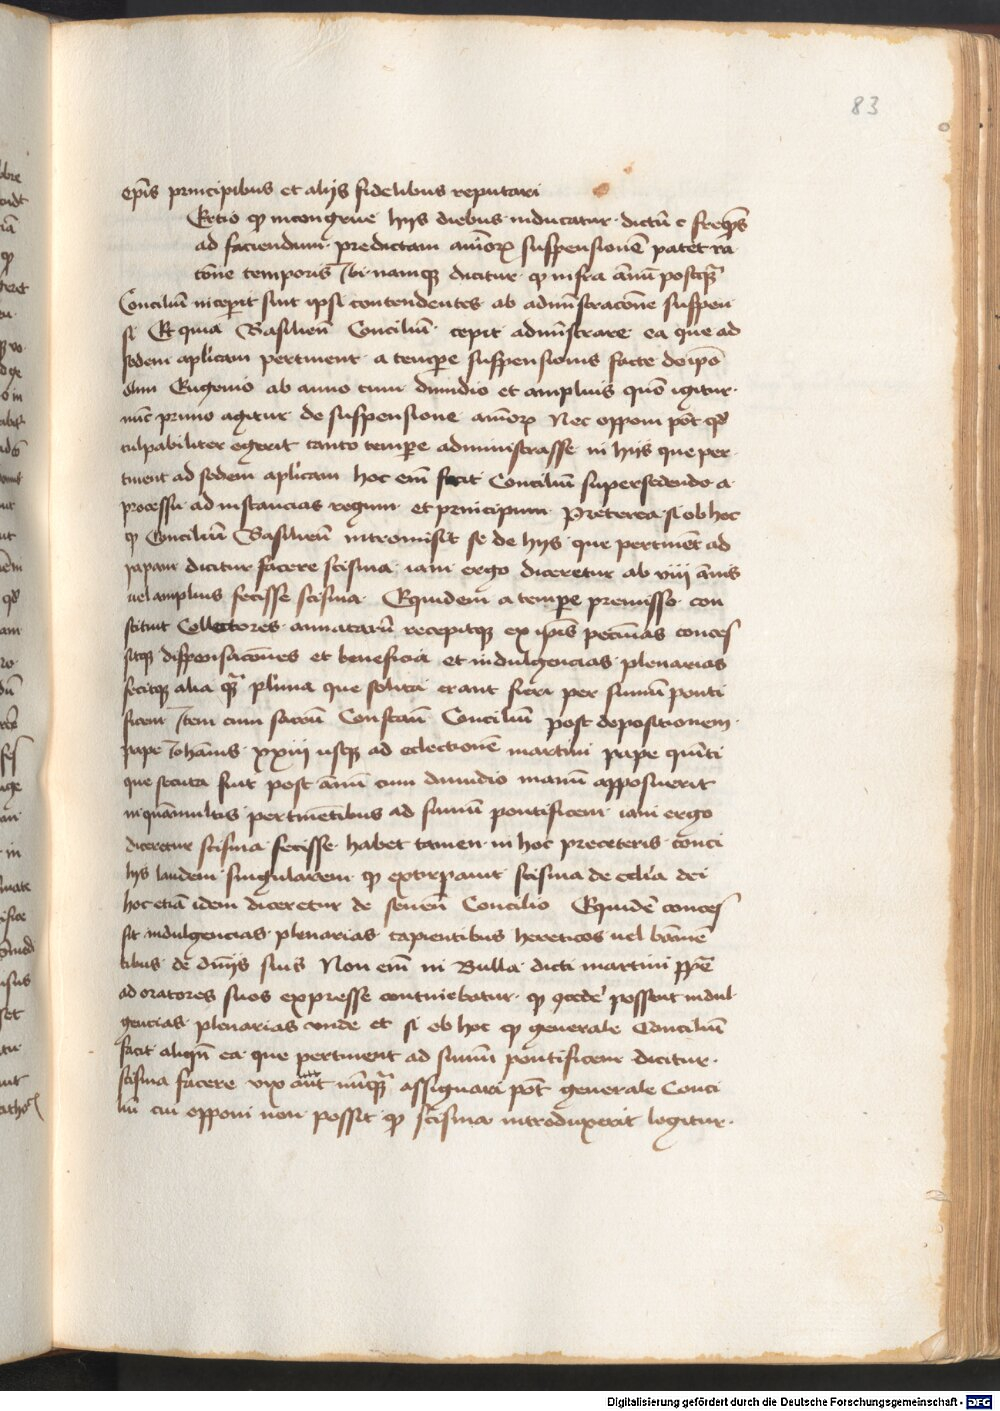 83
ep̄is principibus et alijs fidelibus reputari
Ertio qͥ incongrue hijs diebus inducatur dictū c freq̄ns
ad faciendum predictam amoꝝ suspensionē patet ra
tōne temporis Ibi namqꝫ dicitur qͥ infra annū postqͣ
Conciliū inceperit sint ipsi contendentes ab administracōne suspen
si Et quia Basilien̄ Conciliū cepit administrare ea que ad
sedem aplicam pertinent a tempe suspensionis facte de ipō
olim Eugenio ab anno cum dimidio et amplius quō igitur
nūc primo agitur de suspensione amoꝝ Nec opponi pōt qd
culpabiliter egerit tanto tempe administrasse in hijs que per
tinent ad sedem aplicam hoc em̄ facit Conciliū supersedendo a
processu ad instancias regum et principum Preterea si ob hoc
qͥ Conciliū Basilien̄ intromisit se de hijs que pertinēt ad
papam dicitur facere scisma iam ergo diceretur ab viii annis
uel amplius fecisse scisma Equidem a tempe premisso con
stituit Collectores annatarū recepitqꝫ ex ipis pecunias conces
sitqꝫ dispensacōnes et beneficia et indulgencias plenarias
fecitqꝫ alia qͣ plima que solita erant fieri per sūmū ponti
ficem Item cum sacrū Constan̄ Conciliū post depositionem
pape Johannis xxiii usqꝫ ad eclectionē martini pape quīti
que secuta fuit post annū cum dimidio manū apposuerit
in quāmultis pertinētibus ad sūmū pontificem iam ergo
diceretur scisma fecisse habet tamen in hoc preceteris conci
lijs laudem singularem qͥ extirpauit scisma de ecclia dei
hoc etiā idem diceretur de senen̄ Concilio Equidē conces
sit indulgencias plenarias capientibus hereticos uel
tibus de dn̄ijs suis Non em̄ in Bulla dicti martini ppē
ad oratores suos expresse continebatur qͥ ꝯcedē possent indul
gencias plenarias unde et si ob hoc qͥ generale Conciliū
facit aliqn̄ ea que pertinent ad sūmū pontificem dicitur
scisma facere vix aūt nūqͣ assignari pōt generale Conci
liū cui opponi non possit qͥ scisma introduxerit legitur
Digitalisierung gefördert durch die Deutsche Forschungsgemeinschaft - DFG